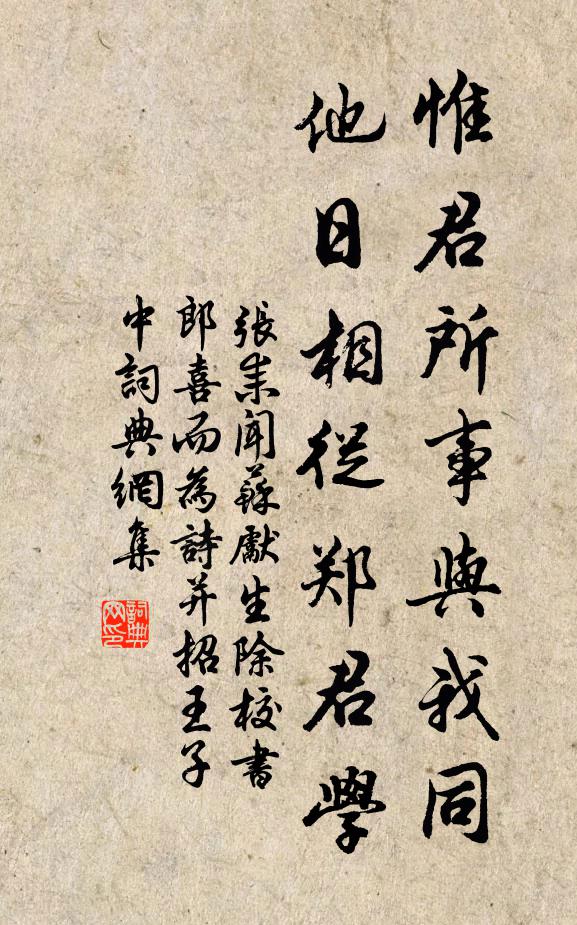 惟君所事與我同
他日相從郑君學
張耒聞蘇獻生除校書
郎喜而為詩并招王子
中詞典網集
詞典网印